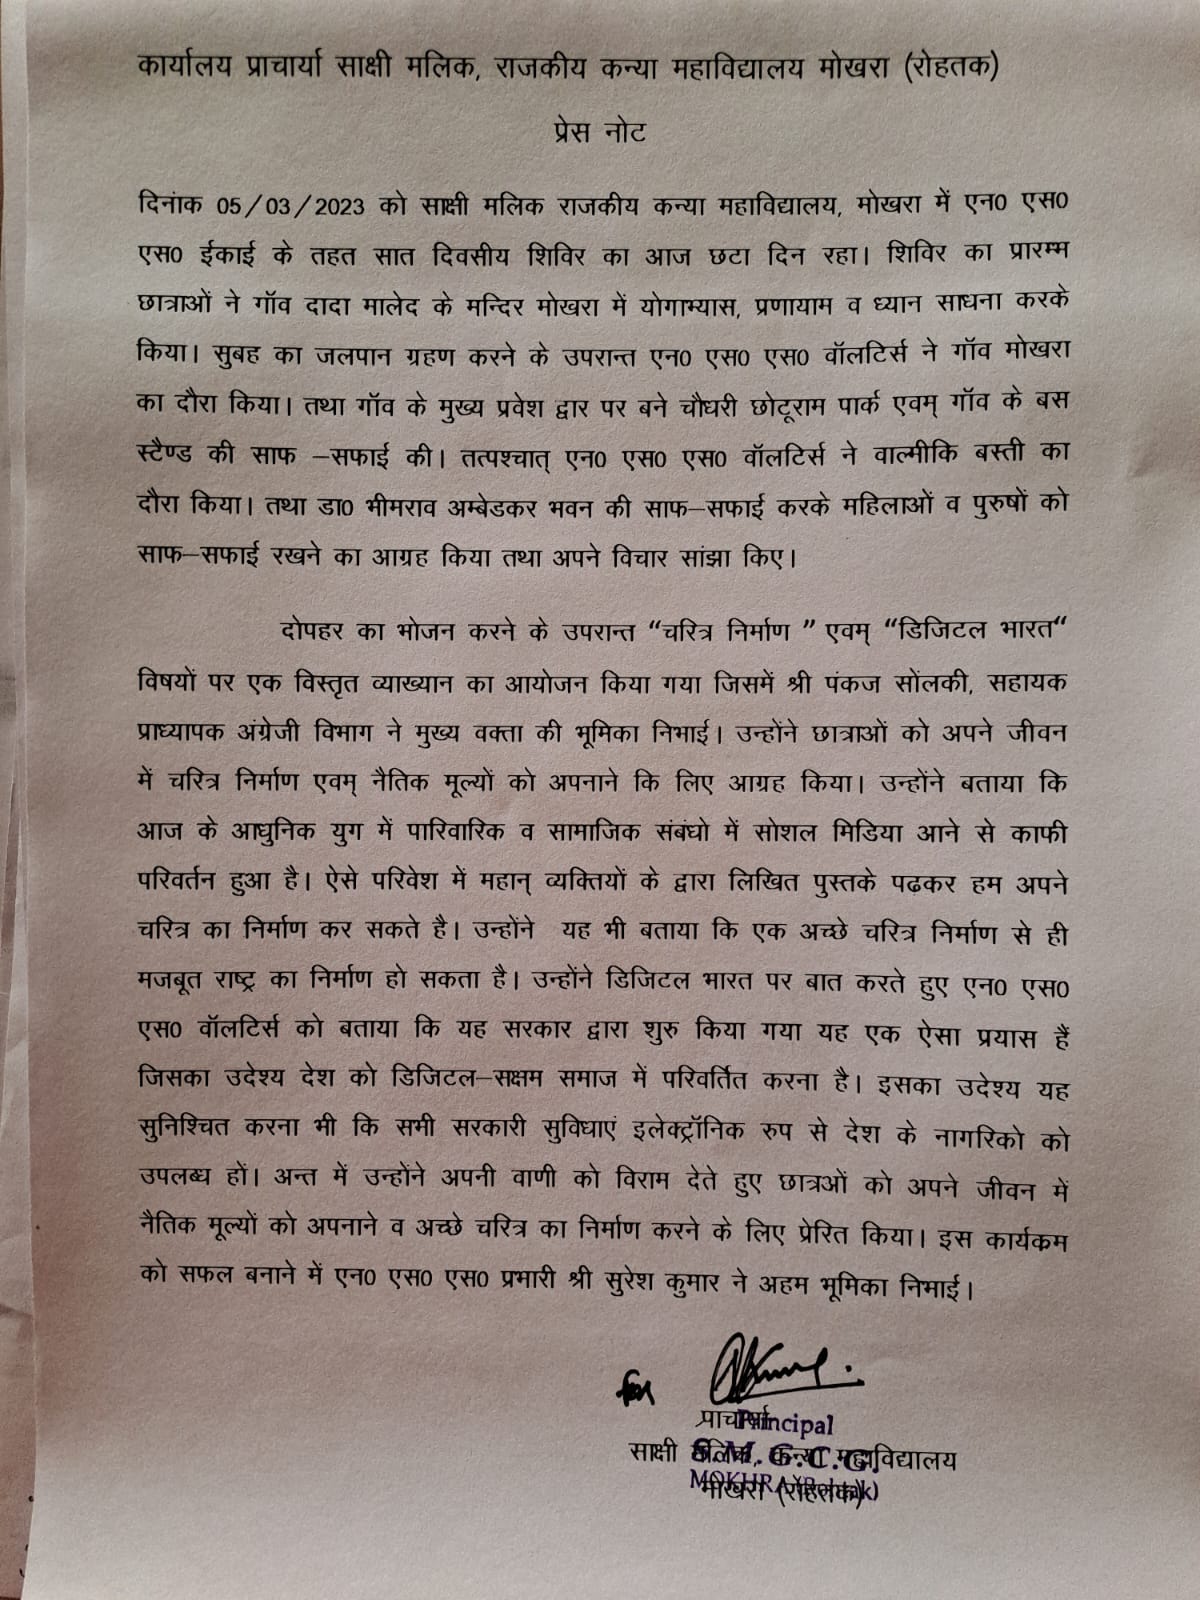 कार्यालय प्राचार्या साक्षी मलिक, राजकीय कन्या महाविद्यालय मोखरा (रोहतक)
प्रेस नोट
दिनांक 05/03/2023 को साक्षी मलिक राजकीय कन्या महाविद्यालय, मोखरा में एन0 एस0
एस0 ईकाई के तहत सात दिवसीय शिविर का आज छटा दिन रहा। शिविर का प्रारम्भ
छात्राओं ने गॉव दादा मालेद के मन्दिर मोखरा में योगाभ्यास, प्रणायाम व ध्यान साधना करके
किया। सुबह का जलपान ग्रहण करने के उपरान्त एन0 एस0 एस0 वॉलटिर्स ने गॉव मोखरा
का दौरा किया। तथा गॉव के मुख्य प्रवेश द्वार पर बने चौधरी छोटूराम पार्क एवम् गॉव के बस
स्टैण्ड की साफ –सफाई की। तत्पश्चात् एन0 एस0 एस0 वॉलटिर्स ने वाल्मीकि बस्ती का
दौरा किया। तथा डा0 भीमराव अम्बेडकर भवन की साफ–सफाई करके महिलाओं व पुरुषों को
साफ–सफाई रखने का आग्रह किया तथा अपने विचार सांझा किए।
दोपहर का भोजन करने के उपरान्त “चरित्र निर्माण ” एवम् “डिजिटल भारत“
विषयों पर एक विस्तृत व्याख्यान का आयोजन किया गया जिसमें श्री पंकज सोंलकी, सहायक
प्राध्यापक अंग्रेजी विभाग ने मुख्य वक्ता की भूमिका निभाई। उन्होंने छात्राओं को अपने जीवन
में चरित्र निर्माण एवम् नैतिक मूल्यों को अपनाने कि लिए आग्रह किया। उन्होंने बताया कि
आज के आधुनिक युग में पारिवारिक व सामाजिक संबंघो में सोशल मिडिया आने से काफी
परिवर्तन हुआ है। ऐसे परिवेश में महान् व्यक्तियों के द्वारा लिखित पुस्तके पढकर हम अपने
चरित्र का निर्माण कर सकते है। उन्होंने यह भी बताया कि एक अच्छे चरित्र निर्माण से ही
मजबूत राष्ट्र का निर्माण हो सकता है। उन्होंने डिजिटल भारत पर बात करते हुए एन0 एस0
एस0 वॉलटिर्स को बताया कि यह सरकार द्वारा शुरु किया गया यह एक ऐसा प्रयास हैं
जिसका उदेश्य देश को डिजिटल–सक्षम समाज में परिवर्तित करना है। इसका उदेश्य यह
सुनिश्चित करना भी कि सभी सरकारी सुविधाएं इलेक्ट्रॉनिक रुप से देश के नागरिको को
उपलब्ध हों। अन्त में उन्होंने अपनी वाणी को विराम देते हुए छात्रओं को अपने जीवन में
नैतिक मूल्यों को अपनाने व अच्छे चरित्र का निर्माण करने के लिए प्रेरित किया। इस कार्यकम
को सफल बनाने में एन0 एस0 एस0 प्रभारी श्री सुरेश कुमार ने अहम भूमिका निभाई।
for
प्राचार्या
Principal
साक्षी मलिक, कन्या महाविद्यालय
S.M.G.C.G.
मोखरा (रोहतक)
MOKHRA (Rohtak)